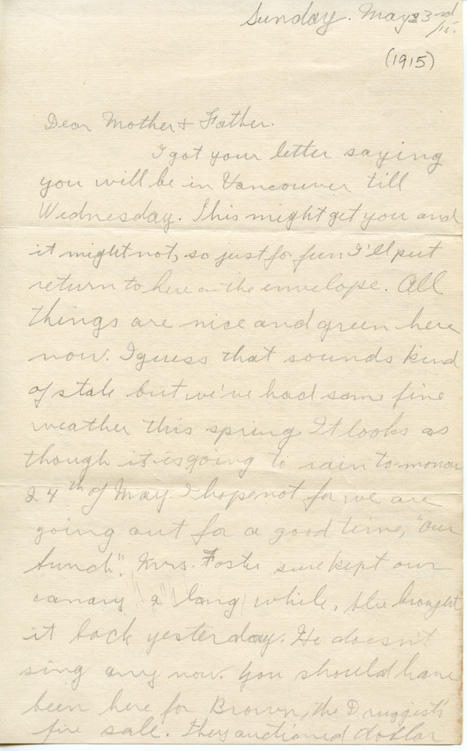 Sunday. May 23rd
/15.
(1915)
Dear Mother & Father.
I got your letter saying
you will be in Vancouver till
Wednesday. This might get you and
it might not, so just for fun I'll put
return to here on the envelope. All
things are nice and green here
now. I guess that sounds kind
of stale but we've had some fine
weather this spring. It looks as
though it is going to rain to-morrow
24th of May. I hope not for we are
going out for a good time, "our
bunch". Mrs. Foster sure kept our
canary a long while. She brought
it back yesterday. He doesn't
sing any now. You should have
been here for Brown, the Druggist's
fire sale. They auctioned dollar